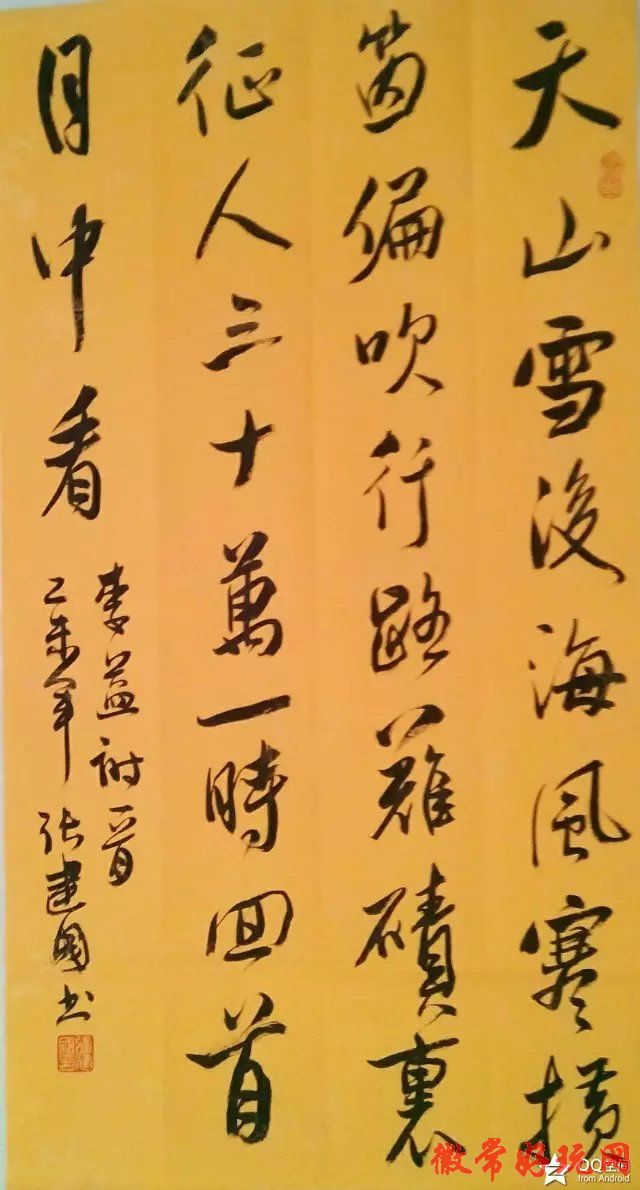 天山雪後海風寒橫
笛偏吹行路難磧裏
征人三十萬一時回首
月中看
李益詩一首
乙未年 張建國書
徽常好玩网
QQ空间
from Android